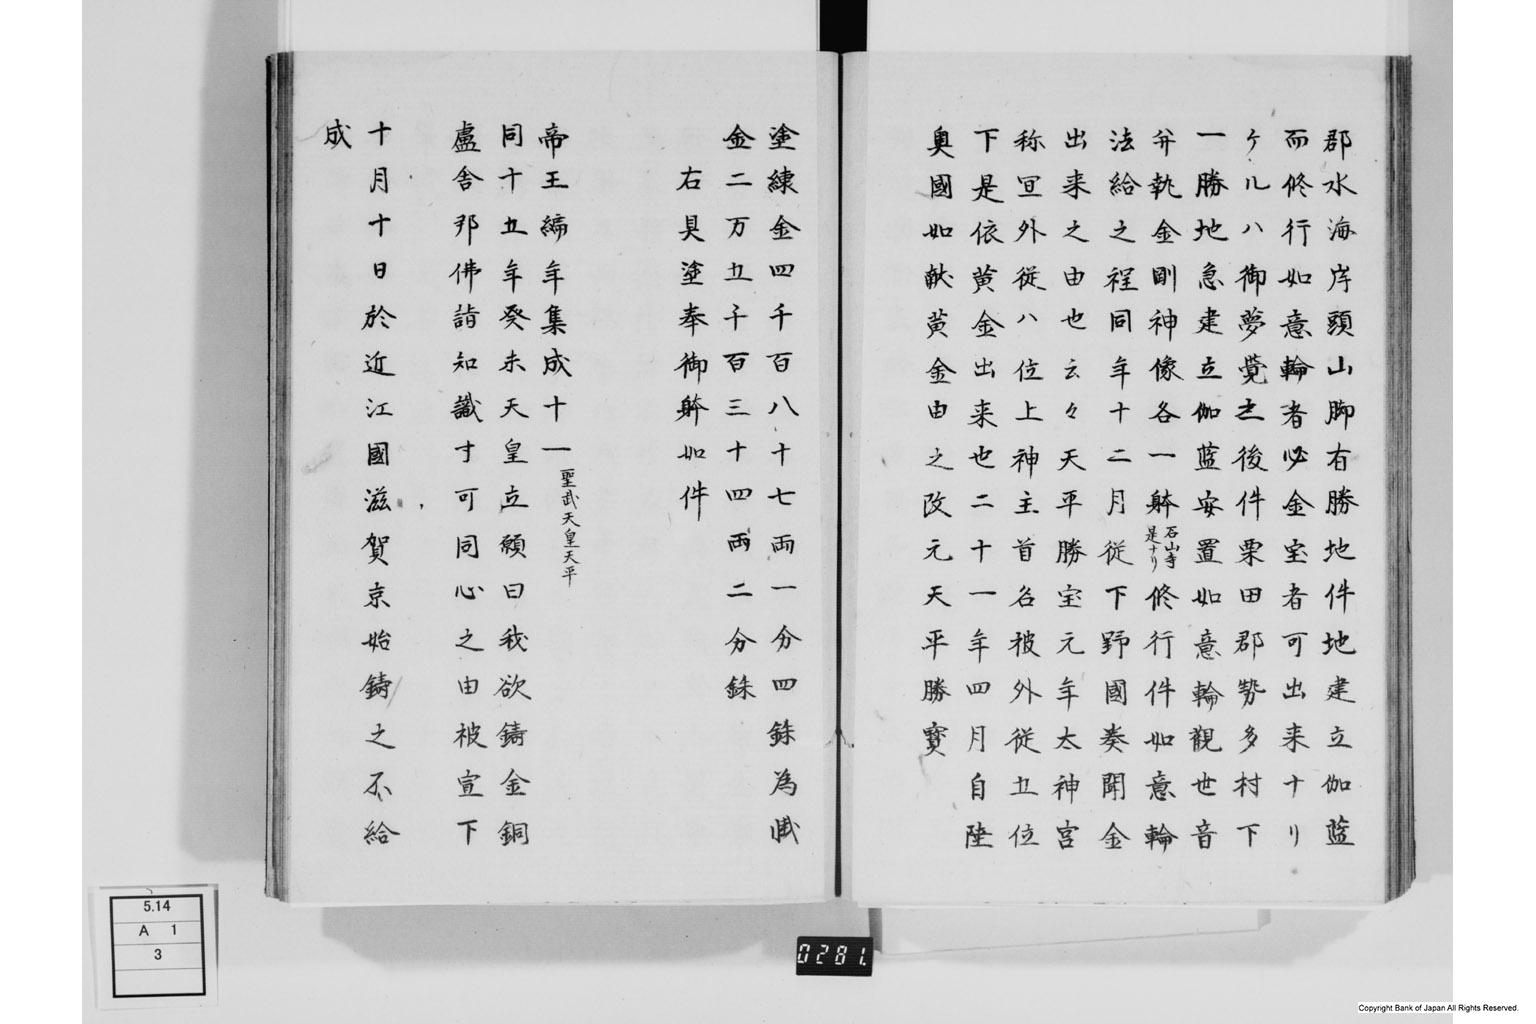 郡水海岸頭山脚有勝地件地建立伽藍
而修行如意輪者必金宝者可出来ナリ
ケルハ御夢覚之後件栗田郡勢多村下
一勝地急建立伽藍安置如意輪観世音
并執金剛神像各一躰石山寺是ナリ修行件如意輪
法給之程同年十二月従下野國奏聞金
出来之由也云々天平勝宝元年太神宮
称宜外従八位上神主首名被外従五位
下是依黄金出来也二十一年四月自陸
奥國如献黄金由之改元天平勝寶
塗練金四千百八十七両一分四銖為
金二万五千百三十四両二分銖
右具塗奉御躰如件
帝王編年集成十一聖武天皇天平
同十五年癸未天皇立願曰我欲鋳金銅
盧舎那佛詣知識寸可同心之由被宣下
十月十日於近江國滋賀京始鋳之不給
成
5.14
A 1
3
0281.
Copyright Bank of Japan All Rights Reserved.